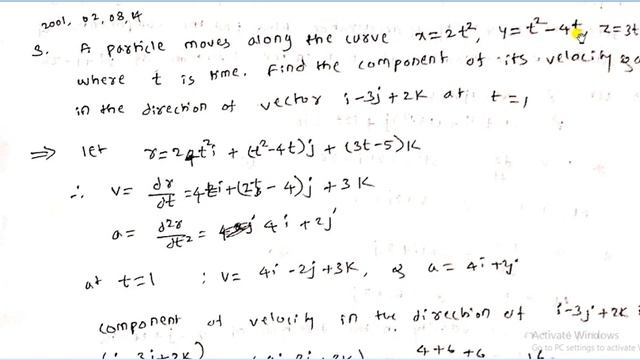 2001, 02, 03, 14
3. A particle moves along the curve x=2t², y=t²-4t, z=3t
where t is time. Find the component of its velocity
in the direction of vector i-3j+2k at t=1
⇒ let r=2t²i + (t²-4t)j + (3t-5)K
∴ v= dr/dt =4ti+(2t-4)j+3K
a= d²r/dt² = 4i+2j
at t=1 : v= 4i-2j+3K, & a= 4i+2j
component of velocity in the direction of i-3j+2K
Activate Windows
Go to PC settings to activate
4+6+6